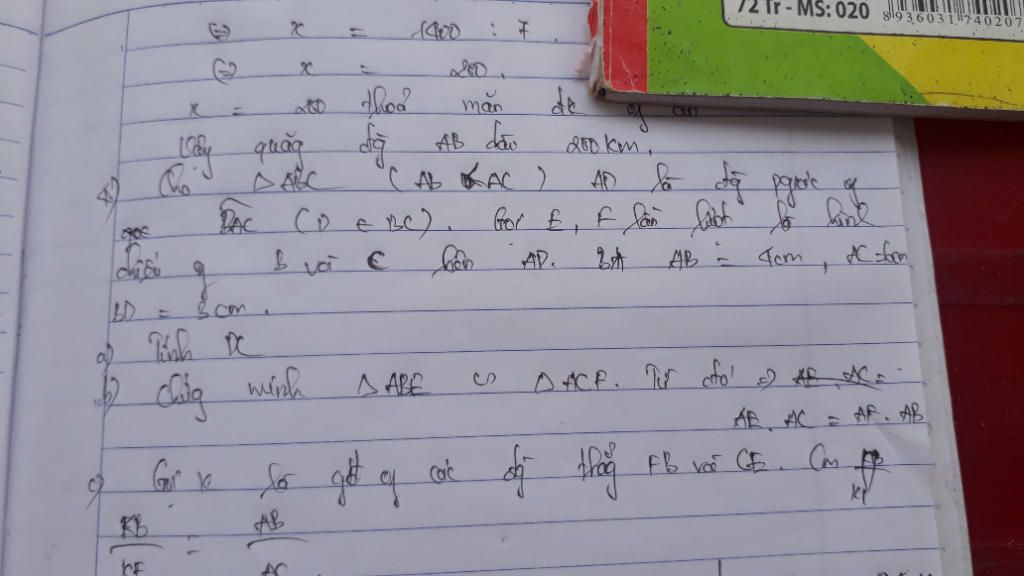 72 Tr - MS: 020
8 936031 740207
⇔ x = 1400 : 7.
⇔ x = 200.
x = 200 thoả mãn đk
Vậy quãng đg AB dài 200km.
4) Cho △ ABC (AB < AC) AD là đg pgiác
góc BAC (D ∈ BC). Gọi E, F lần lượt là hình
chiếu B và C lên AD. AB = 4cm,
BD = 3cm.
a) Tính DC
b) Chứng minh △ABE ∽ △ACF. Từ đó ⇒
AE. AC = AF. AB
c) Gọi K là gđ các đg thẳng FB và CE. Cm
KB = AB
KE AC